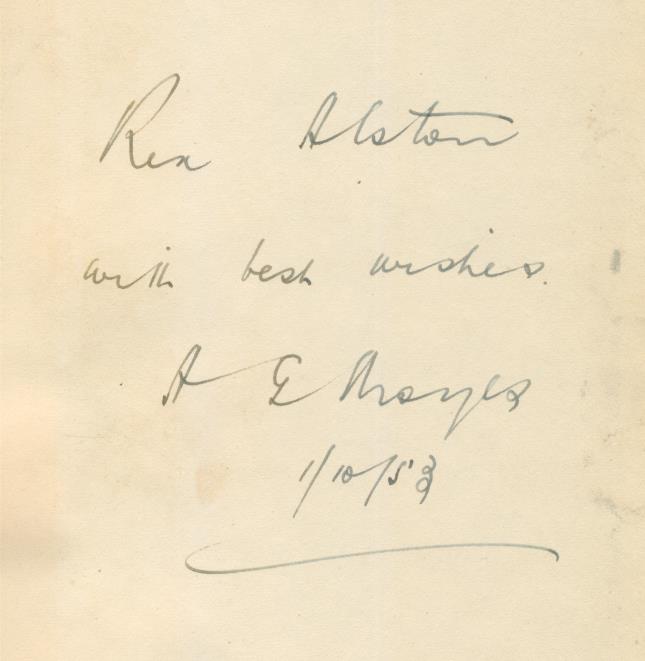 Rex Alston
with best wishes.
A G Moyes
1/10/53